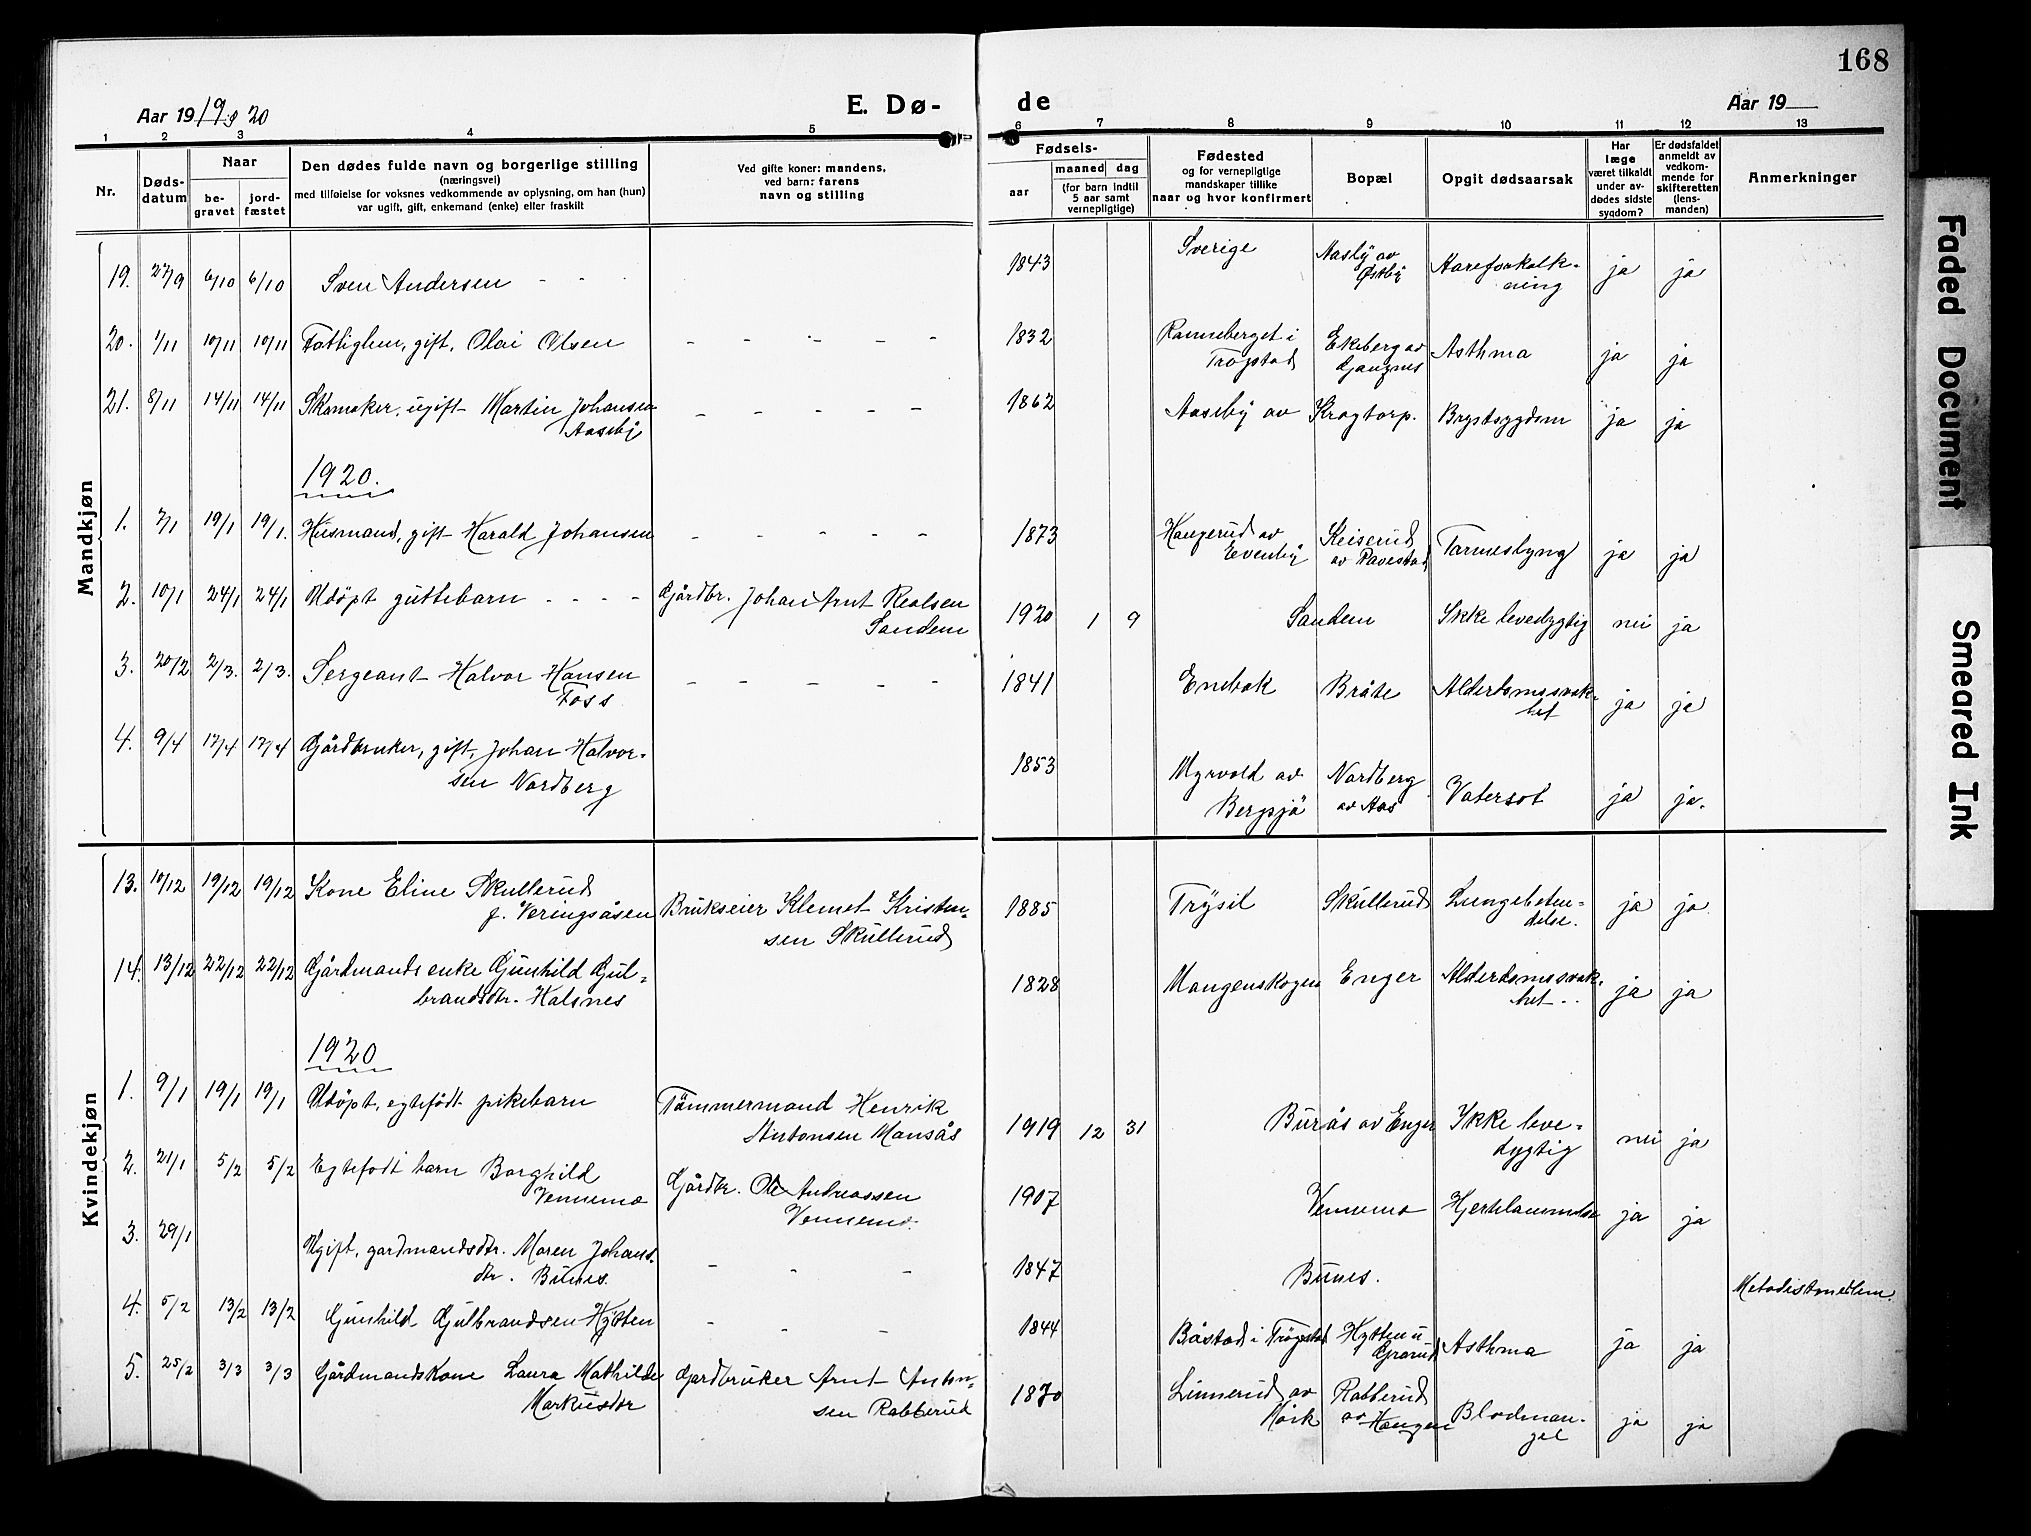 168
Aar 1919 o 20
E. Dø-
de
Aar 19
1 2 3 4 5 6 7 8 9 10 11 12 13
Nr.
Døds-
datum
Naar
be-
gravet
jord-
fæstet
Den dødes fulde navn og borgerlige stilling
(næringsvei)
med tilføielse for voksnes vedkommende av oplysning, om han (hun)
var ugift, gift, enkemand (enke) eller fraskilt
Ved gifte koner: mandens,
ved barn: farens
navn og stilling
Fødsels-
aar
maaned dag
(for barn indtil
5 aar samt
vernepligtige)
Fødested
og for vernepligtige
mandskaper tillike
naar og hvor konfirmert
Bopæl
Opgit dødsaarsak
Har
læge
været tilkaldt
under av-
dødes sidste
sygdom?
Er dødsfaldet
anmeldt av
vedkom-
mende for
skifteretten
(lens-
manden)
Anmerkninger
Mandkjøn
19. 27/9 6/10 6/10 Sven Andersen - - - 1843 Sverige Aasby av
Østby Aareforkalk-
ning ja ja
20. 1/11 10/11 10/11 Fattiglem, gift, Olai Olsen - - - - - 1832 Ramneberget i
Trøgstad Ekeberg av
Gangnes Asthma ja ja
21. 8/11 14/11 14/11 Skomaker, ugift Martin Johansen
Aaseby - - - - - 1862 Aaseby av Kragtorp. Brystsygdom ja ja
1920.
1. 7/1 19/1 19/1. Husmand, gift Harald Johansen - - - - - 1873 Haugerud av
Evenby Keiserud
av Ravestad Tarmeslyng ja ja
2. 10/1 24/1 24/1 Udöpt guttebarn - - - - Gårdbr. Johan Arnt Realsen
Sandem 1920 1 9 Sandem Ikke levedygtig nei ja
3. 20/2 2/3. 2/3. Sergeant Halvor Hansen
Foss - - - - - 1841 Enebak Bråte Alderdomssvak-
het ja ja
4. 9/4 17/4 17/4 Gårdbruker, gift, Johan Halvor-
sen Nordberg 1853 Myrvold av
Bergsjö Nordberg
av Aas Vatersot ja ja.
Kvindekjøn
13. 10/12 19/12 19/12 Kone Eline Skullerud
f. Veringsåsen Brukseier Klemet Kristen-
sen Skullerud 1885 Trysil Skullerud Lungebeten-
delse. ja ja
14. 13/12 22/12 22/12 Gårdmands enke Gunhild Gul-
brandsdtr. Halsnes 1828 Mangenskogen Enger Alderdomssvak-
het - - ja ja
1920
1. 9/1 19/1 19/1 Udöpt, egtefödt pikebarn Tömmermand Henrik
Antonsen Mansås 1919 12 31 Burås av Enger Ikke leve-
dygtig nei ja
2. 21/1 5/2 5/2 Egtefödt barn Borghild
Vennemo Gårdbr. Ole Andreassen
Vennemo. 1907 Vennemo Hjertelammelse ja ja
3. 29/1 Ugift, gardmandsdtr. Maren Johans-
dtr. Bunes. - - - 1847 Bunes. Metodistmedlem.
4. 5/2 13/2 13/2 Gunhild Gulbrandsen Hytten - - - 1844 Båstad i Trögstad Hytten u
Grarud Asthma ja ja
5. 25/2 3/3 3/3 Gårdmandskone Laura Mathilde
Markusdtr Gardbruker Arnt Anton-
sen Rabberud 1870 Linnerud av
Mörk Rabberud
av Haugen Blodman-
gel ja ja
Faded Document
Smeared Ink